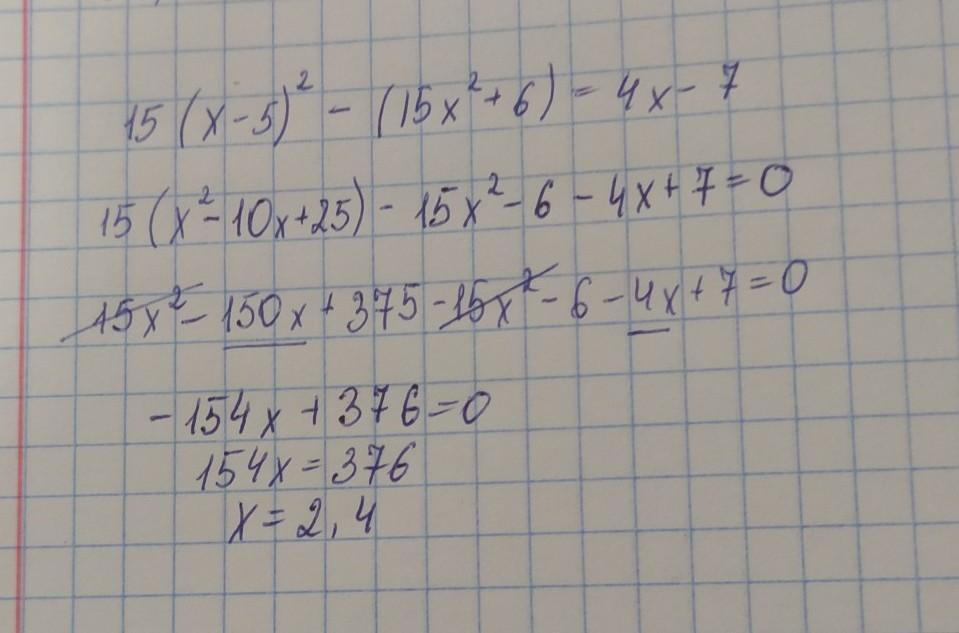 15(x-5)² - (15x²+6) = 4x - 7
15(x²-10x+25) - 15x² - 6 - 4x + 7 = 0
15x² - 150x + 375 - 15x² - 6 - 4x + 7 = 0
-154x + 376 = 0
154x = 376
x = 2,4